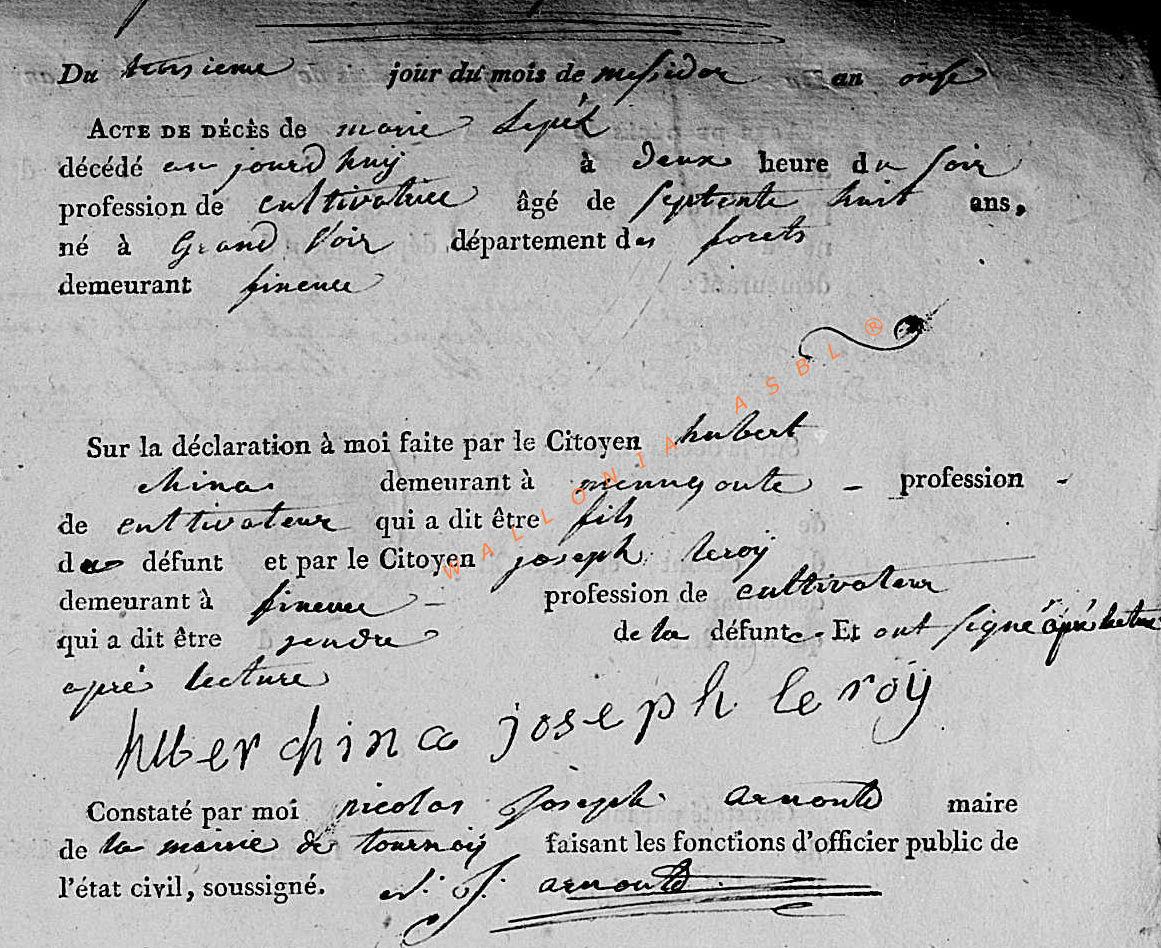 Du troisieme jour du mois de messidor an onse
ACTE DE DÉCÈS de marie Lepék
décédé au jourd huij à deux heure du soir
profession de cultivatrice âgé de septente huit ans,
né à Grand Voir département des forets
demeurant fineuse
WALLONIA ASBL ®
Sur la déclaration à moi faite par le Citoyen hubert
china demeurant à profession
de cultivateur qui a dit être fils
de défunt et par le Citoyen joseph leroÿ
demeurant à fineuse profession de cultivateur
qui a dit être jendre de la défunte. Et ont signé après lecture
après lecture
huber china joseph le roÿ
Constaté par moi nicolas joseph arnould maire
de la mairie de tournaÿ faisant les fonctions d'officier public de
l'état civil, soussigné. N. J. arnould